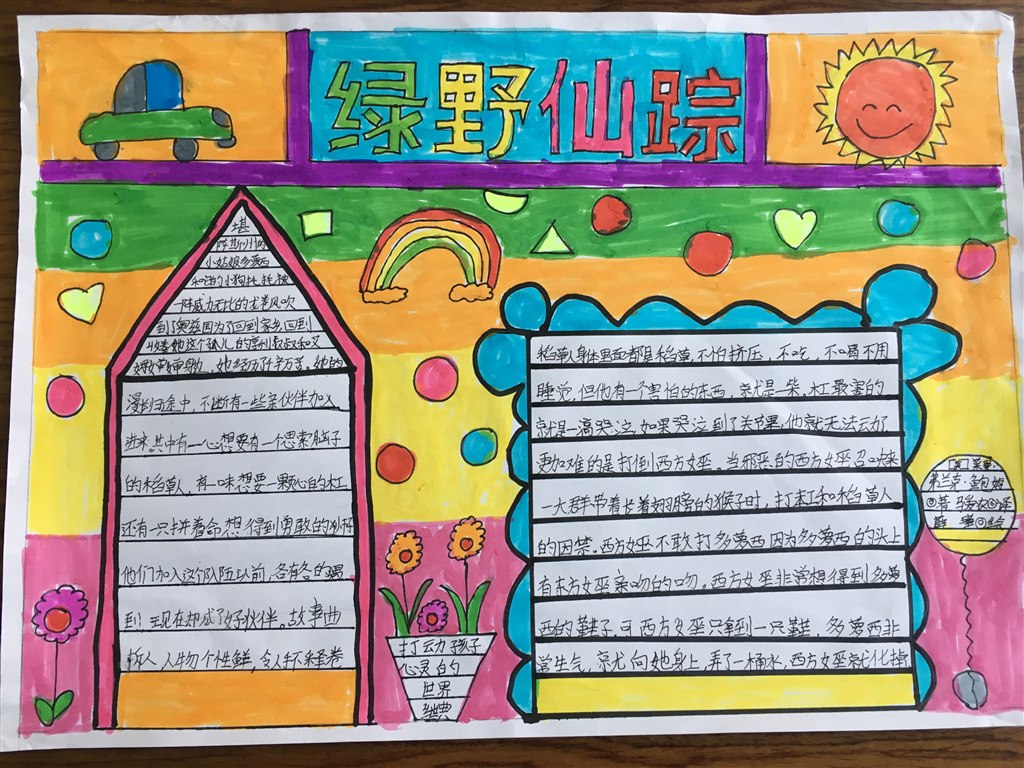 绿野仙踪
堪
萨斯州的
小姑娘多萝西
和她的小狗托托被
一阵威力无比的龙卷风吹
到了奥兹国为了回到家乡回到
收养她这个孤儿的亨利叔叔和艾
姆婶婶身边，她历尽千辛万苦。她的
漫长归途中，不断有一些亲伙伴加入
进来，其中有一心想要有一个思索脑子
的稻草人，有一味想要一颗心的
还有一只拼着命想得到勇敢的
他们加入这个队伍以前，各有各的
到，现在却成了好伙伴。故事曲
折人，人物个性鲜，令人不释卷
打动孩子
心灵的
世界
经典
稻草人身体里面都是稻草，不怕挤压，不吃，不喝不用
睡觉，但他有一个害怕的东西，就是柴。最害的
就是一滴哭泣，如果哭泣到了关节里，他就无法云力
更加难的是打倒西方女巫。当邪恶的西方女巫召唤来
一大群带着长着翅膀的猴子时，打来和稻草人
的囚禁。西方女巫不敢打多萝西因为多萝西的头上
有东方女巫亲吻的吻。西方女巫非常想得到多萝
西的鞋子，可西方女巫只拿到一只鞋，多萝西非
常生气，就尤向她身上，弄了一桶水，西方女巫就化掉
[美]莱曼·
弗兰克·鲍姆
◎著 马爱农◎译
◎绘